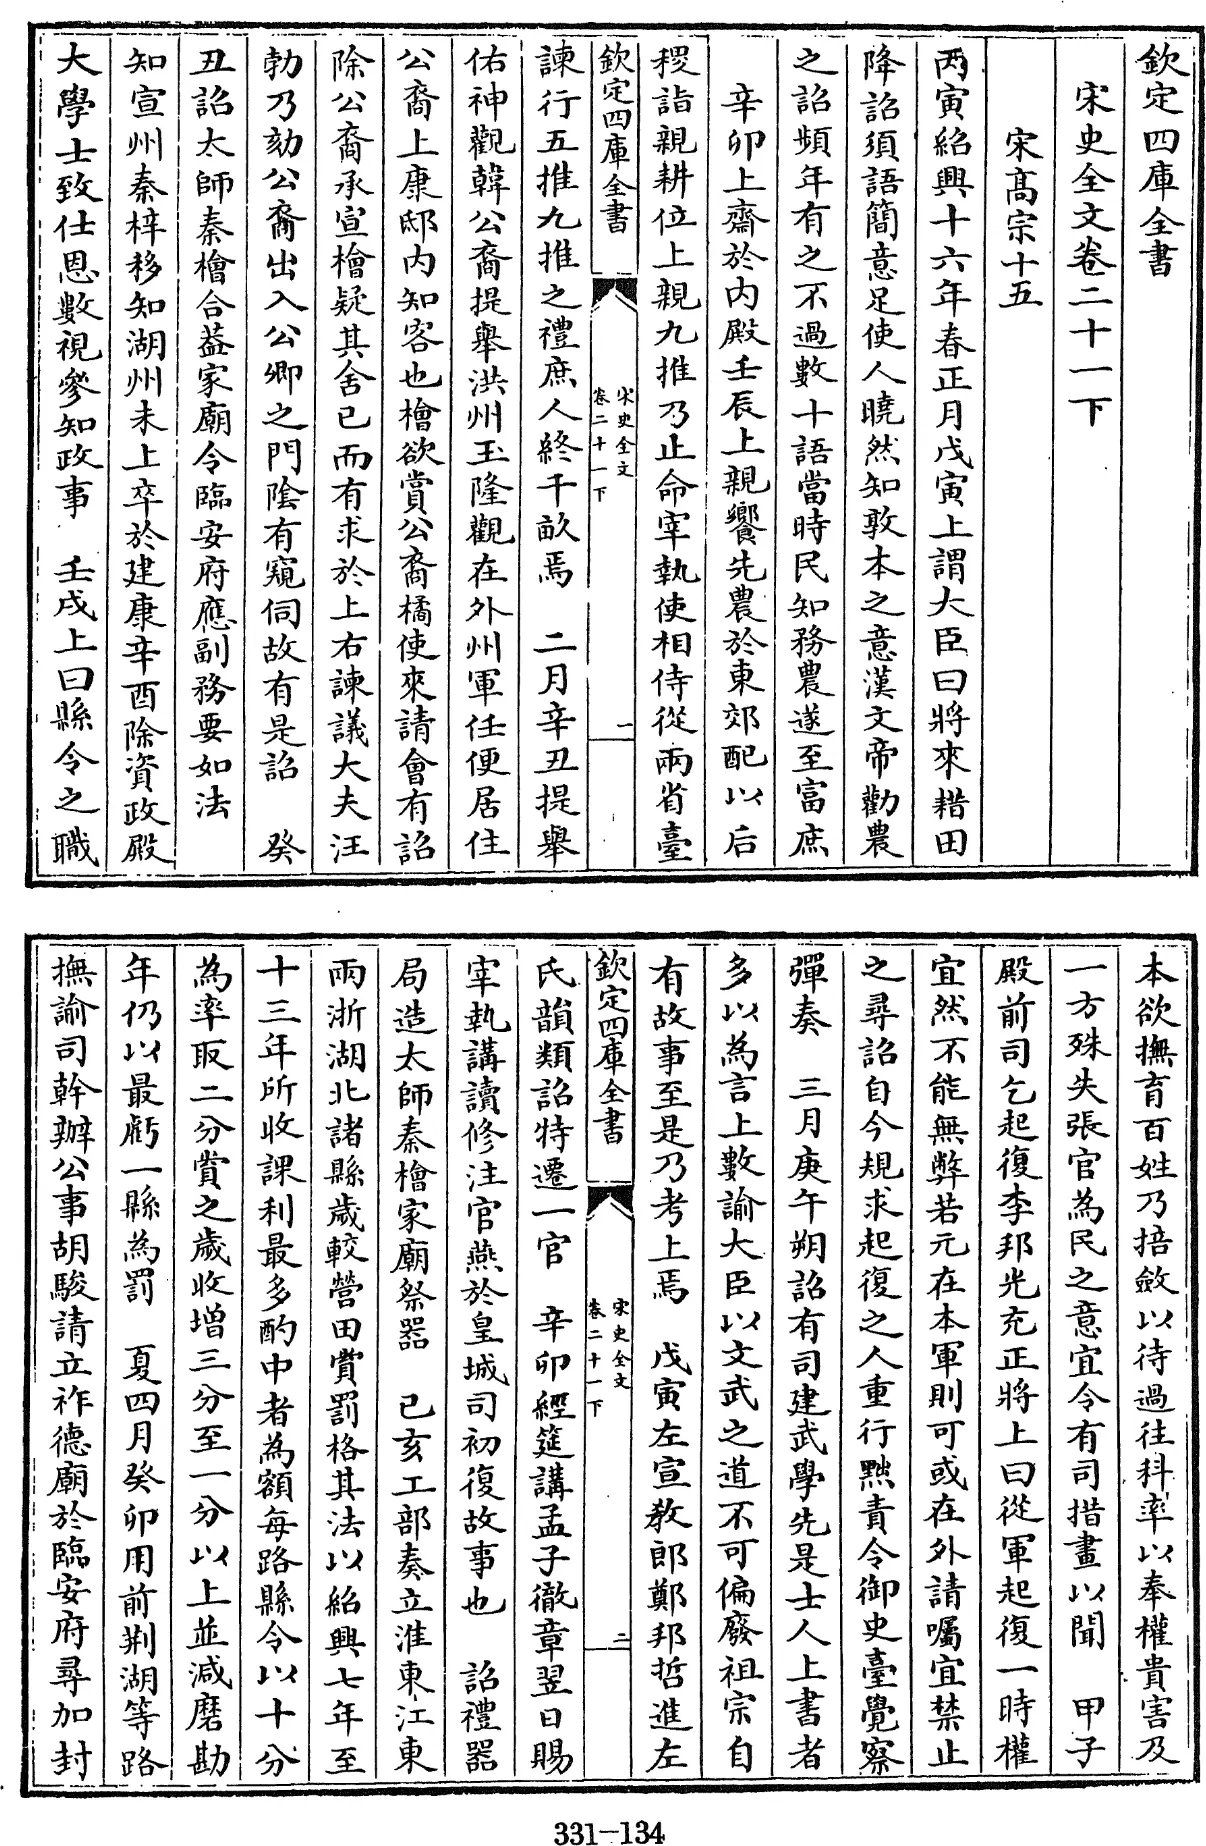 欽定四庫全書
宋史全文卷二十一下
宋髙宗十五
丙寅紹興十六年春正月戊寅上謂大臣曰將來耤田
降詔須語簡意足使人曉然知敦本之意漢文帝勸農
之詔頻年有之不過數十語當時民知務農遂至富庶
辛卯上齋於内殿壬辰上親饗先農於東郊配以后
稷詣親耕位上親九推乃止命宰執使相侍從兩省臺
欽定四庫全書
宋史全文
卷二十一下
一
諫行五推九推之禮庶人終千畝焉　二月辛丑提舉
佑神觀韓公裔提舉洪州玉隆觀在外州軍任便居住
公裔上康邸内知客也檜欲賞公裔橘使來請㑹有詔
除公裔承宣檜疑其舍已而有求於上右諫議大夫汪
勃乃劾公裔出入公卿之門隂有窺伺故有是詔　癸
丑詔太師秦檜合葢家廟令臨安府應副務要如法
知宣州秦梓移知湖州未上卒於建康辛酉除資政殿
大學士致仕恩數視參知政事　壬戌上曰縣令之職
本欲撫育百姓乃掊斂以待過往科率以奉權貴害及
一方殊失張官為民之意宜令有司措畫以聞　甲子
殿前司乞起復李邦光充正將上曰從軍起復一時權
宜然不能無弊若元在本軍則可或在外請囑宜禁止
之尋詔自今規求起復之人重行黜責令御史臺覺察
彈奏　三月庚午朔詔有司建武學先是士人上書者
多以為言上數諭大臣以文武之道不可偏廢祖宗自
有故事至是乃考上焉　戊寅左宣教郎鄭邦哲進左
欽定四庫全書
宋史全文
卷二十一下
二
氏韻類詔特遷一官　辛卯經筵講孟子徹章翌日賜
宰執講讀修注官燕於皇城司初復故事也　詔禮器
局造太師秦檜家廟祭器　已亥工部奏立淮東江東
兩浙湖北諸縣嵗較營田賞罰格其法以紹興七年至
十三年所收課利最多酌中者為額每路縣令以十分
為率取二分賞之嵗收增三分至一分以上並減磨勘
年仍以最虧一縣為罰　夏四月癸卯用前荆湖等路
撫諭司幹辦公事胡駿請立祚德廟於臨安府尋加封
331-134